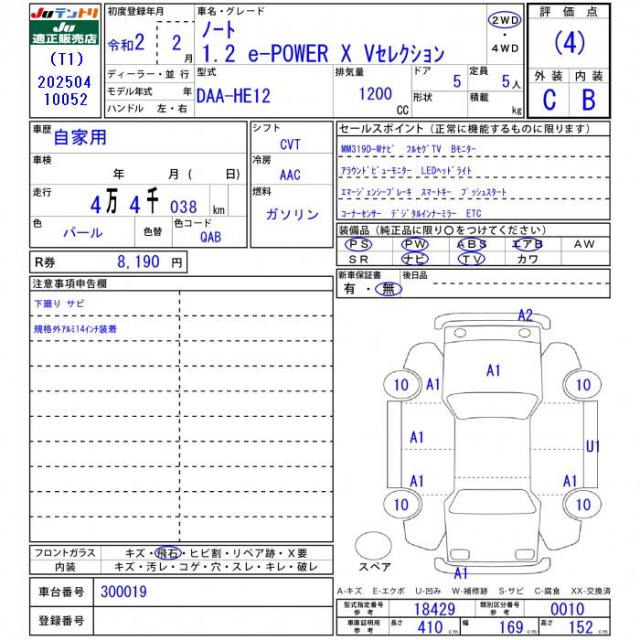 JUテントリ
JU適正販売店
(T1)
202504
10052
初度登録年月
令和2 2月
ディーラー・並行
モデル年式 年
ハンドル 左・右
車名・グレード
ノート
1.2 e-POWER X Vセレクション
2WD
・
4WD
型式
DAA-HE12
排気量
1200 CC
ドア 5
形状
定員 5人
積載 kg
評価点
(4)
外装 内装
C B
車歴
自家用
車検
年 月( 日)
走行
4万4千038km
色
パール
色替
色コード
QAB
シフト
CVT
冷房
AAC
燃料
ガソリン
R券 8,190円
セールスポイント(正常に機能するものに限ります)
MM319D-Wナビ フルセグTV Bモニター
アラウンドビューモニター LEDヘッドライト
エマージェンシーブレーキ スマートキー プッシュスタート
コーナーセンサー デジタルインナーミラー ETC
装備品(純正品に限り〇をつけてください)
PS PW ABS エアB AW
SR ナビ TV カワ
新車保証書
有・無
後日品
注意事項申告欄
下廻り サビ
規格外アルミ14インチ装着
フロントガラス
キズ・飛石・ヒビ割・リペア跡・X要
内装
キズ・汚レ・コゲ・穴・スレ・キレ・破レ
車台番号 300019
登録番号
A2
10 A1 A1 10
A1 U1
A1 A1
10 10
スペア
A1
A-キズ E-エクボ U-凹み W-補修跡 S-サビ C-腐食 XX-交換済
型式指定番号 参考 18429 類別区分番号 参考 0010
車庫証明用 参考 長さ 410cm 幅 169cm 高さ 152cm